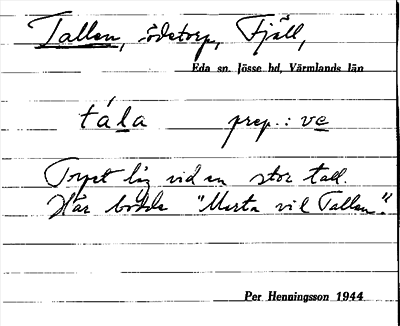 Tallen, ödetorp, Fjäll,
Eda sn. Jösse hd, Värmlands län
tála prep.: ve
Torpet låg vid en stor tall.
Här bodde "Marta vel Tallen".
Per Henningsson 1944